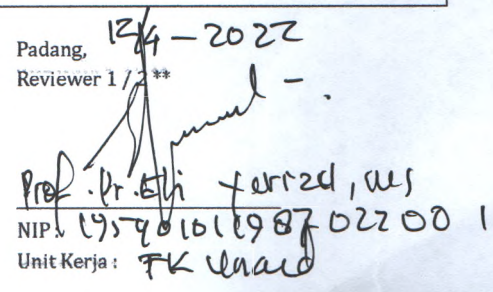 Padang, 12/4 – 2022
Reviewer 1 / 2 **
Prof. Dr. Eti Yerizel, MS
NIP : 19590101198702200 1
Unit Kerja : FK Unand